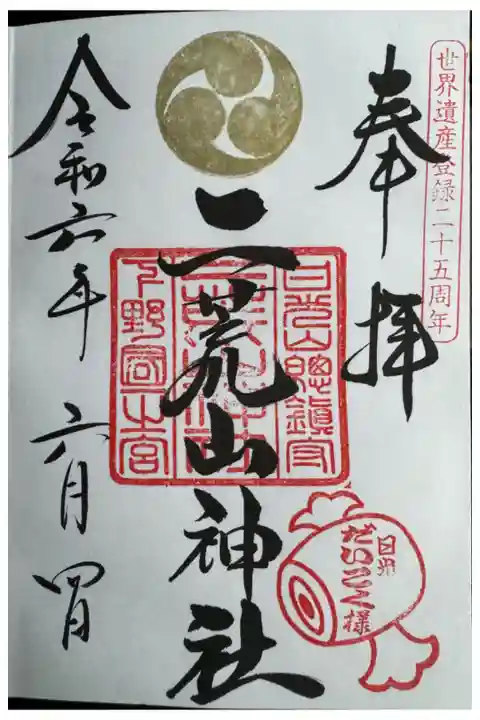 世界遺産登録二十五周年
奉拝
二荒山神社
日光山總鎮守
二荒山神社
下野國一之宮
日光
だいこく様
令和六年 六月 四日